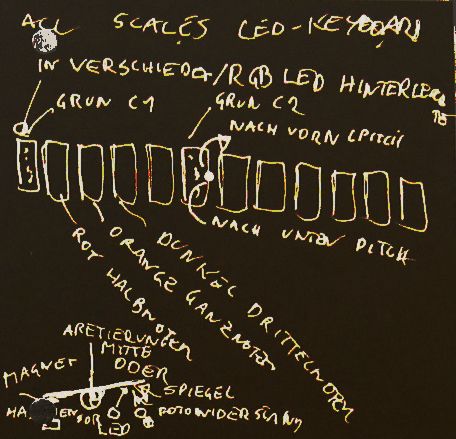 ALL SCALES LED-KEYBOARD
IN VERSCHIEDEN/RGB LED HINTERLEG
GRÜN C1
GRÜN C2
NACH VORN (PITCH
NACH UNTEN PITCH
ROT HALBNOTEN
ORANGE GANZNOTEN
DUNKEL DRITTELNOTEN
ARETIERUNG
MITTE
ODER
MAGNET
SPIEGEL
FOTOWIDERSTAND
LED